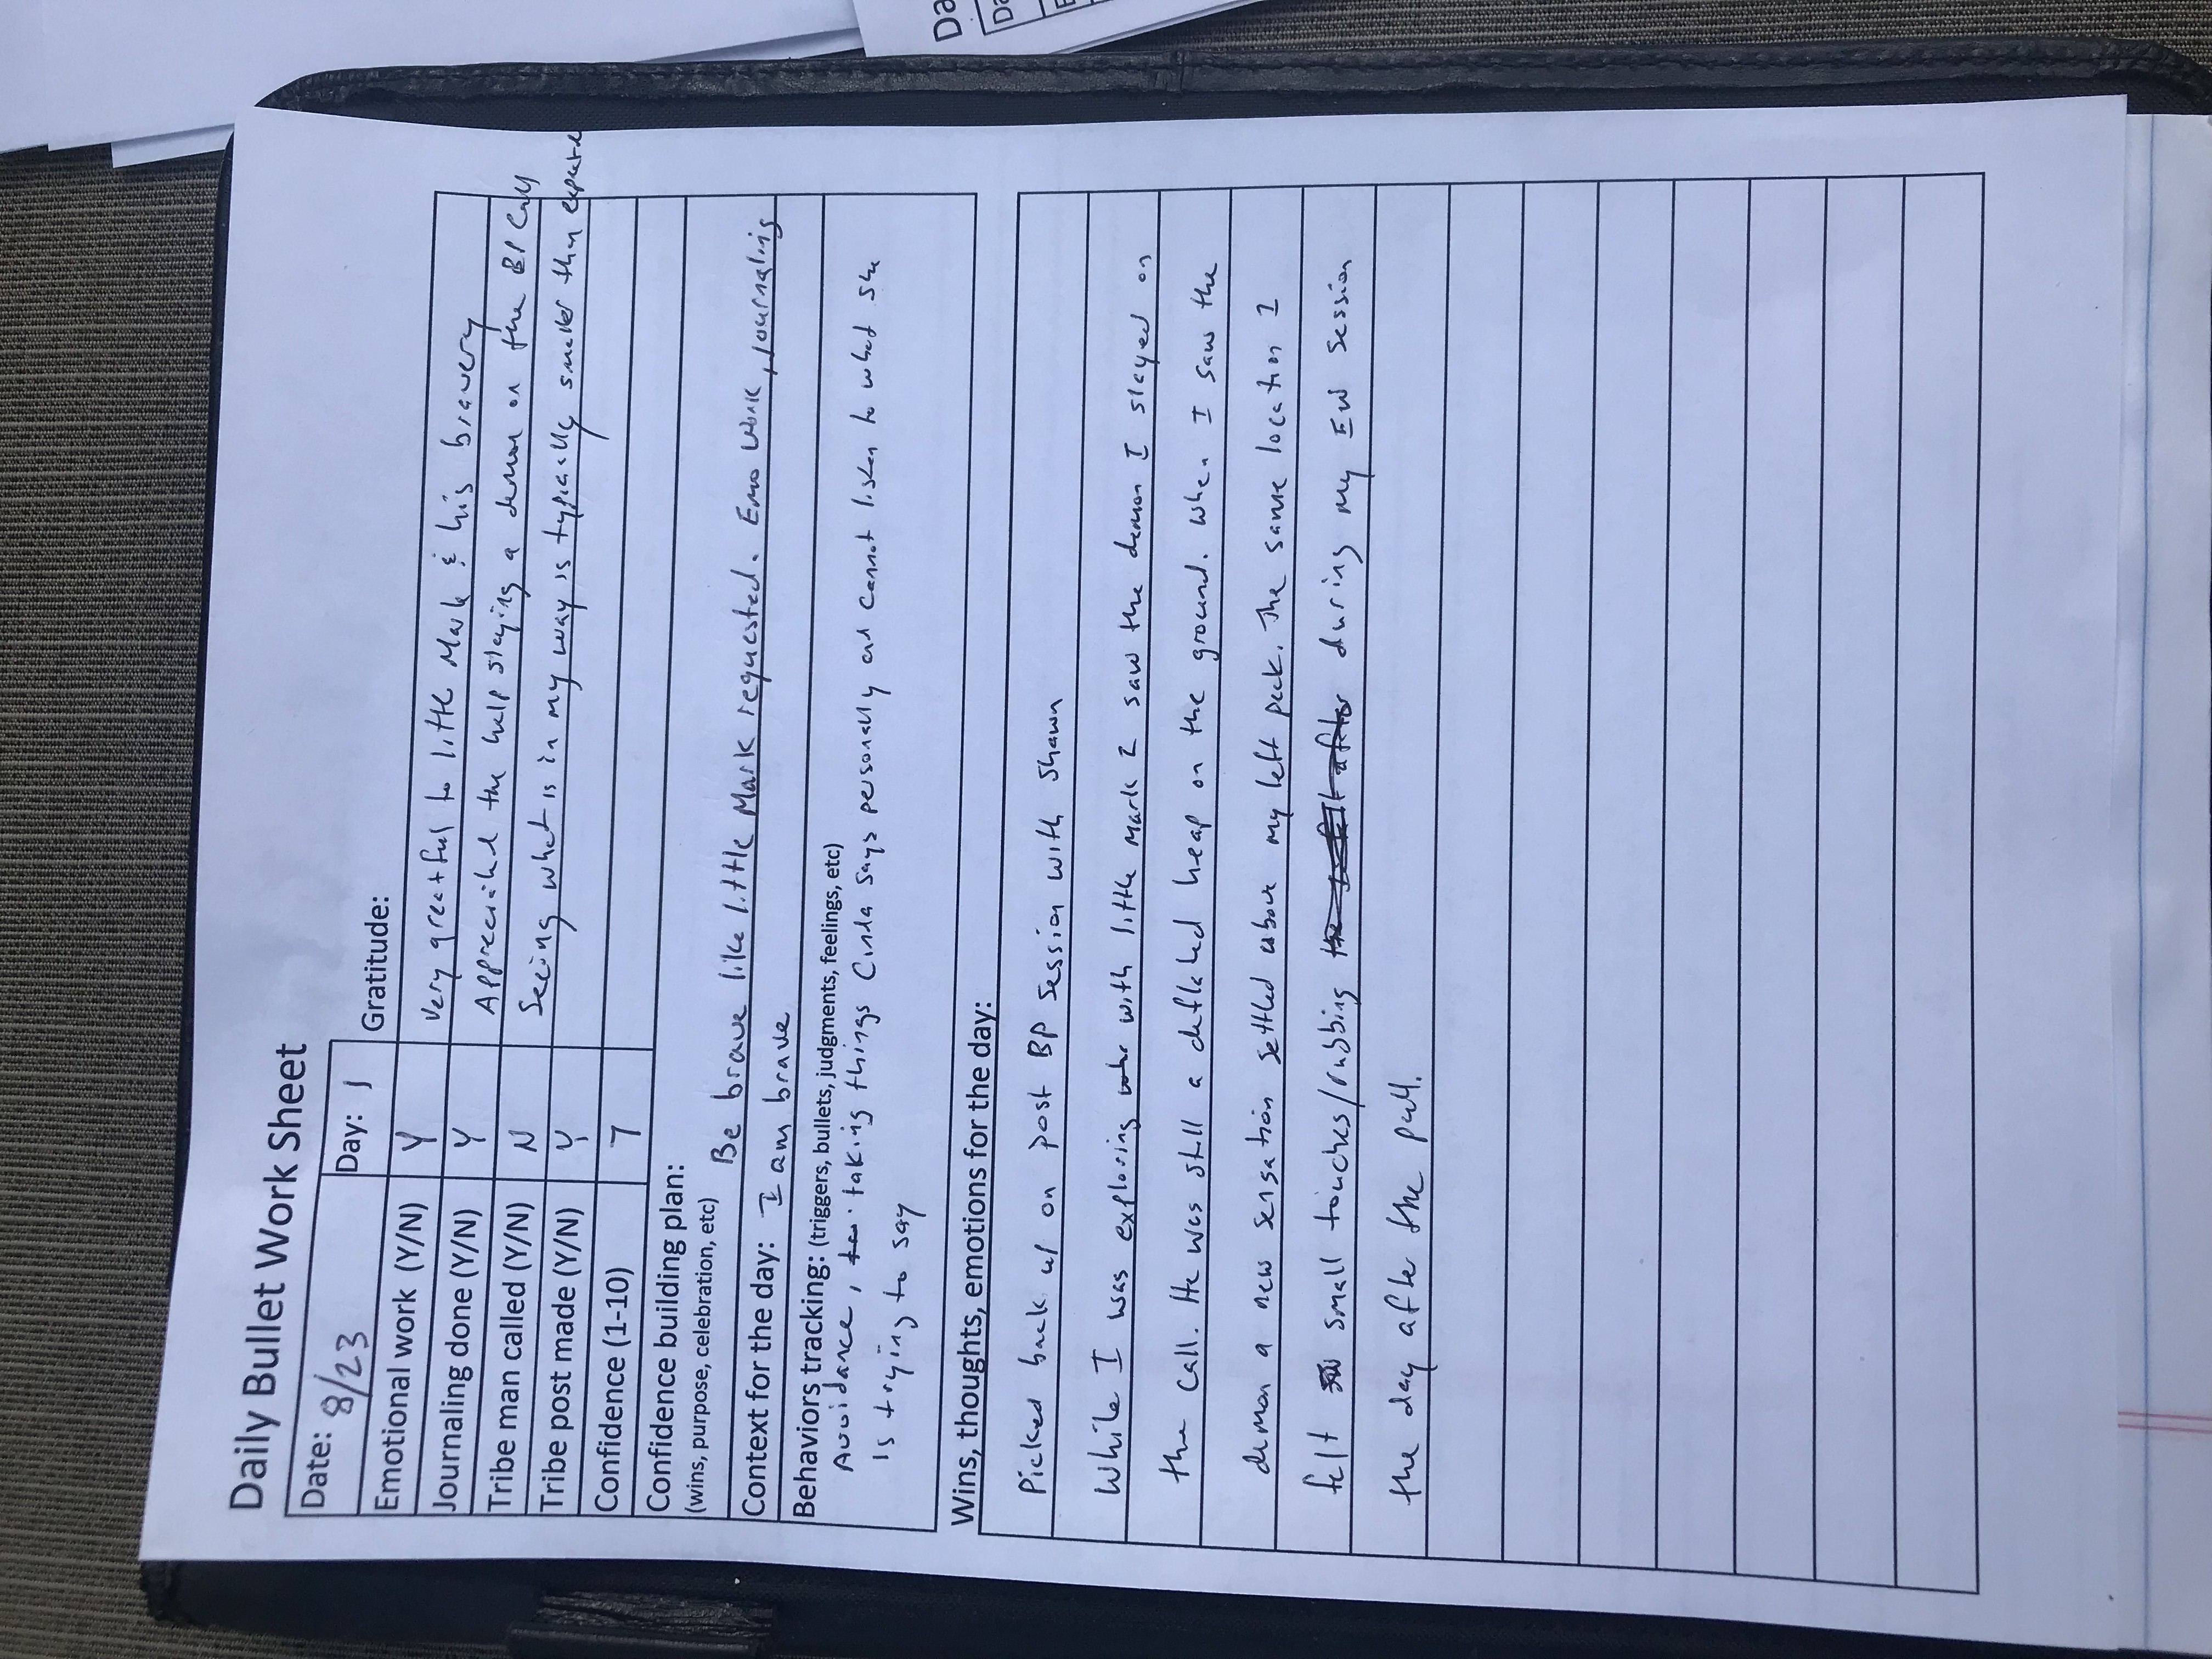 Daily Bullet Work Sheet
Date: 8/23 Day: 1 Gratitude:
Emotional work (Y/N) Y Very greatful to little Mark & his bravery
Journaling done (Y/N) Y Appreciated the help slaying a demon on the BP Call
Tribe man called (Y/N) N Seeing what is in my way is typically smaller than expected
Tribe post made (Y/N) Y
Confidence (1-10) 7
Confidence building plan:
(wins, purpose, celebration, etc) Be brave like little Mark requested. Emo work, journaling
Context for the day: I am brave
Behaviors tracking: (triggers, bullets, judgments, feelings, etc)
Avoidance, taking things Cinda says personally and cannot listen to what she
is trying to say
Wins, thoughts, emotions for the day:
Picked back up on post BP session with Shawn
While I was exploring with little Mark I saw the demon I slayed on
the call. He was still a deflated heap on the ground. When I saw the
demon a new sensation settled above my left peck. The same location I
felt small touches/rubbing during my EW session
the day after the pull.
Da
Da
E